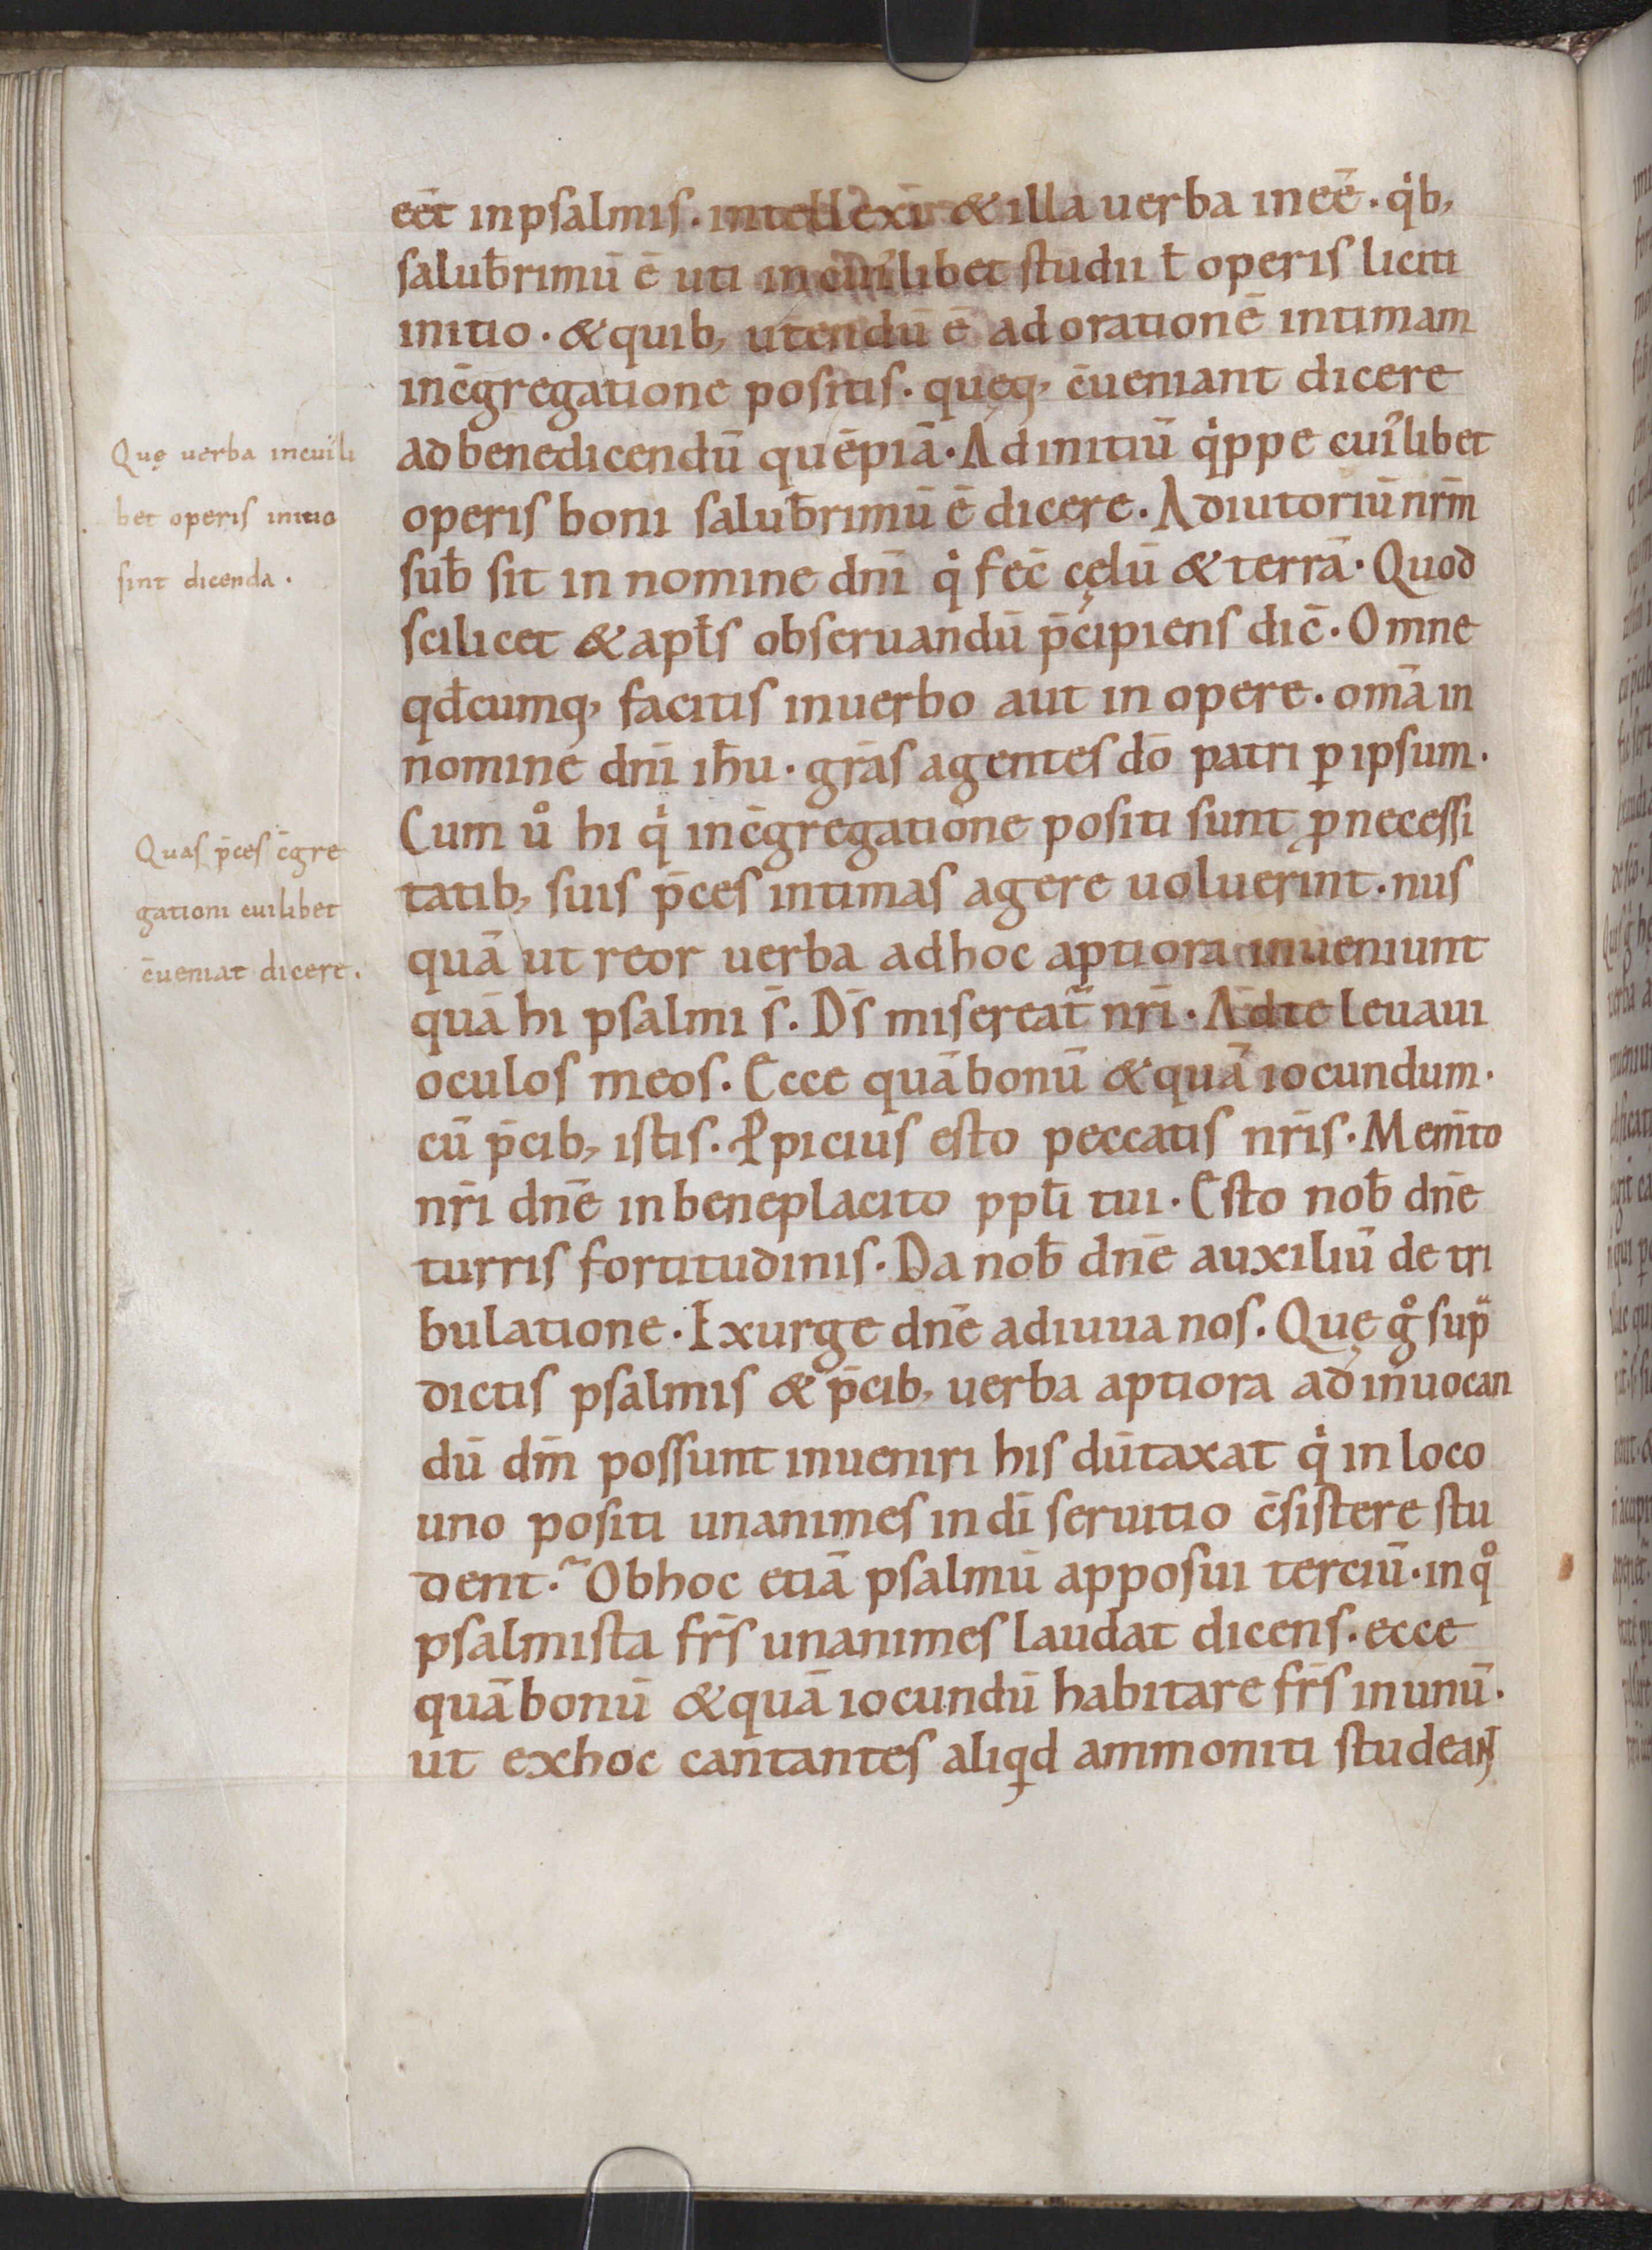 eēt in psalmis. intellexi & illa uerba ineē. q̍b,
salub̄rimū ē uti in cui᷒libet studii ł operis liciti
initio. & quib, utendū ē ad orationē intimam
in c̄gregatione positis. quęq, c̄ueniant dicere
ad benedicendū quēpiā. Ad initiū q̍ppe cui᷒libet
operis boni salub̄rimū ē dicere. Adiutoriū nr̄m
sub̄ sit in nomine dn̄i q̍ fec̄ cęlū & terrā. Quod
scilicet & apłs obseruandū p̄cipiens dic̄. Omne
qđcumq, facitis in uerbo aut in opere. om̄a in
nomine dn̄i ih̄u. gr̄as agentes dō patri ꝑ ipsum.
Cum ů hi q̍ in c̄gregatione positi sunt ꝓ necessi
tatib, suis p̄ces intimas agere uoluerint. nus
quā ut reor uerba ad hoc aptiora inueniunt
quā hi psalmi s̄. Ds̄ misereat᷒ nr̄i. Ad te leuaui
oculos meos. Ecce quā bonū & quā iocundum.
cū p̄cib, istis. Ꝓpicius esto peccatis nr̄is. Mem̄to
nr̄i dn̄e in beneplacito ppłi tui. Esto nob̄ dn̄e
turris fortitudinis. Da nob̄ dn̄e auxiliū de tri
bulatione. Exurge dn̄e adiuua nos. Quę g̊ sup̄
dictis psalmis & p̄cib, uerba aptiora ad inuocan
dū dm̄ possunt inueniri his dūtaxat q̍ in loco
uno positi unanimes in di̅ seruitio c̄sistere stu
dent.᷒ Ob hoc etiā psalmū apposui terciū. in q̊
psalmista fr̄s unanimes laudat dicens. ecce
quā bonū & quā iocundū habitare fr̄s in unū.
ut ex hoc cantantes aliqd ammoniti studeant
Quę uerba in cuili
bet operis initio
sint dicenda.
Quas p̄ces c̄gre
gationi cuilibet
c̄ueniat dicere.